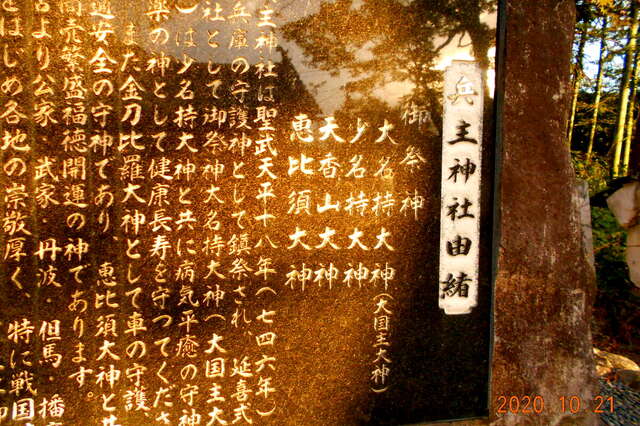 兵主神社由緒
御祭神
大名持大神(大国主大神)
少名持大神
天香山大神
恵比須大神
主神社は聖武天平十八年(七四六年)
兵庫の守護神として鎮祭され、延喜式
社として御祭神大名持大神(大国主大
)は少名持大神と共に病気平癒の守神
薬の神として健康長寿を守つてくださ
また金刀比羅大神として車の守護、
通安全の守神であり、恵比須大神と
商売繁盛福徳開運の神であります。
古より公家・武家・丹波・但馬・播
はじめ各地の崇敬厚く、特に戦国
2020 10 21